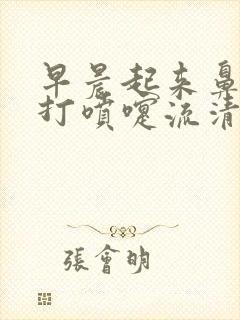 早晨起来鼻
打噴嚏流清
張會明